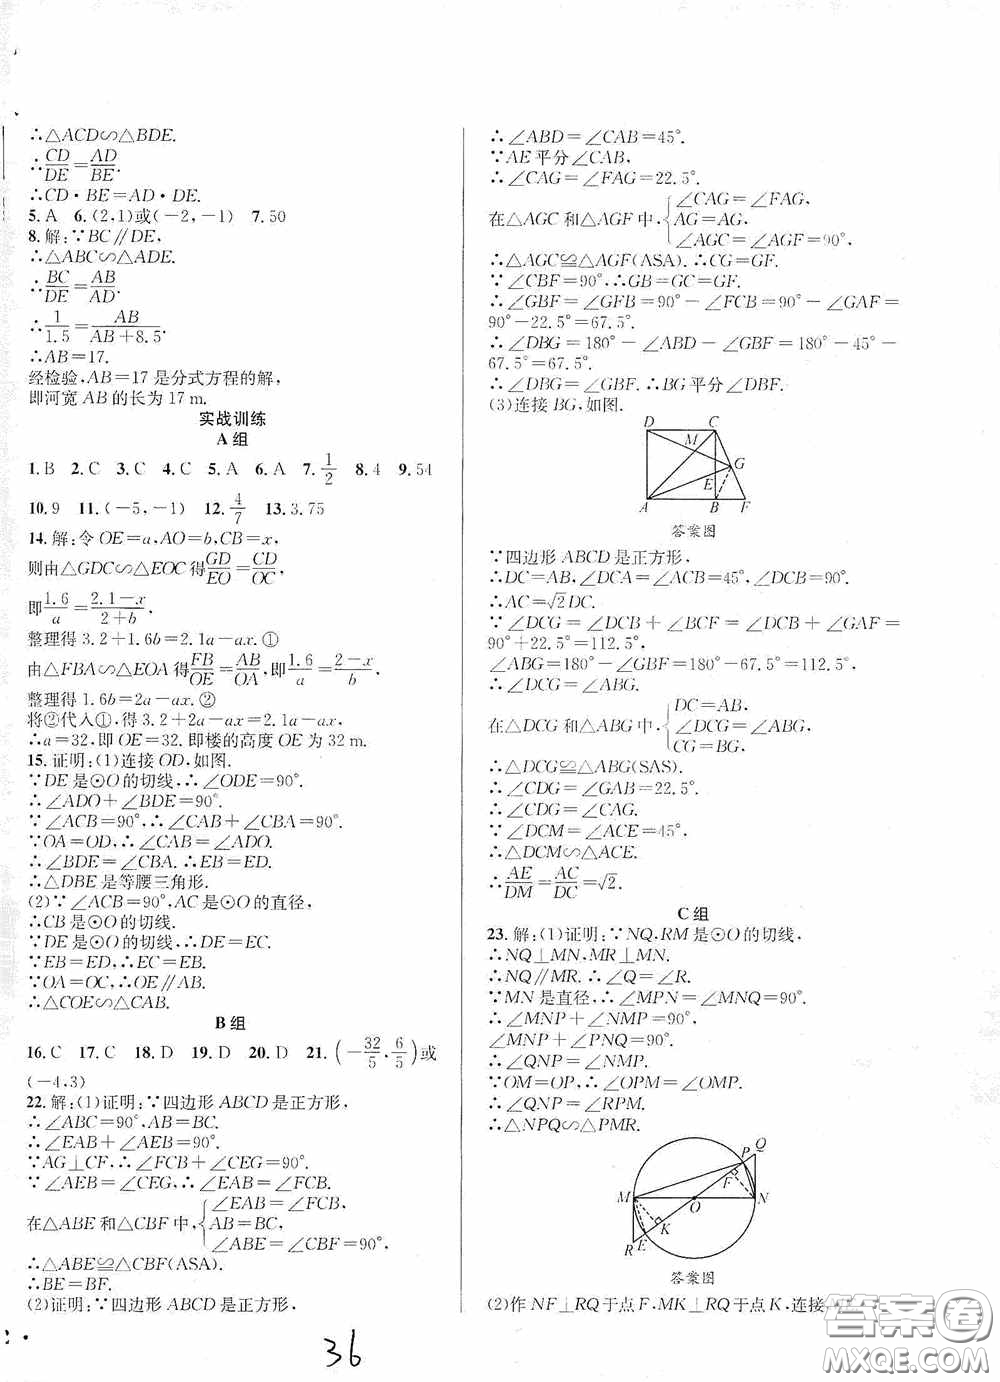 ∴△ACD∽△BDE.
∴CD/DE=AD/BE.
∴CD·BE=AD·DE.
5.A 6.(2,1)或(-2,-1) 7.50
8.解:∵BC∥DE,
∴△ABC∽△ADE.
∴BC/DE=AB/AD.
∴1/1.5=AB/(AB+8.5).
∴AB=17.
经检验,AB=17是分式方程的解,
即河宽AB的长为17 m.
实战训练
A组
1.B 2.C 3.C 4.C 5.A 6.A 7.1/2 8.4 9.54
10.9 11.(-5,-1) 12.4/7 13.3.75
14.解:令OE=a,AO=b,CB=x,
则由△GDC∽△EOC得GD/EO=CD/OC,
即1.6/a=(2.1-x)/(2+b).
整理得3.2+1.6b=2.1a-ax.①
由△FBA∽△EOA得FB/OE=AB/OA,即1.6/a=(2-x)/b,
整理得1.6b=2a-ax.②
将②代入①,得3.2+2a-ax=2.1a-ax,
∴a=32,即OE=32.即楼的高度OE为32 m.
15.证明:(1)连接OD,如图.
∵DE是⊙O的切线,∴∠ODE=90°.
∴∠ADO+∠BDE=90°.
∵∠ACB=90°,∴∠CAB+∠CBA=90°.
∵OA=OD,∴∠CAB=∠ADO.
∴∠BDE=∠CBA.∴EB=ED.
∴△DBE是等腰三角形.
(2)∵∠ACB=90°,AC是⊙O的直径,
∴CB是⊙O的切线.
∵DE是⊙O的切线,∴DE=EC.
∵EB=ED,∴EC=EB.
∵OA=OC,∴OE∥AB.
∴△COE∽△CAB.
B组
16.C 17.C 18.D 19.D 20.D 21.(-32/5,6/5)或
(-4,3)
22.解:(1)证明:∵四边形ABCD是正方形,
∴∠ABC=90°,AB=BC.
∴∠EAB+∠AEB=90°.
∵AG⊥CF,∴∠FCB+∠CEG=90°.
∵∠AEB=∠CEG,∴∠EAB=∠FCB.
在△ABE和△CBF中,{∠EAB=∠FCB,
AB=BC,
∠ABE=∠CBF=90°,
∴△ABE≌△CBF(ASA).
∴BE=BF.
(2)证明:∵四边形ABCD是正方形,
∴∠ABD=∠CAB=45°.
∵AE平分∠CAB,
∴∠CAG=∠FAG=22.5°.
在△AGC和△AGF中,{∠CAG=∠FAG,
AG=AG,
∠AGC=∠AGF=90°,
∴△AGC≌△AGF(ASA).∴CG=GF.
∵∠CBF=90°,∴GB=GC=GF.
∴∠GBF=∠GFB=90°-∠FCB=90°-∠GAF=
90°-22.5°=67.5°.
∴∠DBG=180°-∠ABD-∠GBF=180°-45°-
67.5°=67.5°.
∴∠DBG=∠GBF.∴BG平分∠DBF.
(3)连接BG,如图.
D C
M
G
E
A B F
答案图
∵四边形ABCD是正方形,
∴DC=AB,∠DCA=∠ACB=45°,∠DCB=90°.
∴AC=√2DC.
∵∠DCG=∠DCB+∠BCF=∠DCB+∠GAF=
90°+22.5°=112.5°,
∠ABG=180°-∠GBF=180°-67.5°=112.5°,
∴∠DCG=∠ABG.
在△DCG和△ABG中,{DC=AB,
∠DCG=∠ABG,
CG=BG,
∴△DCG≌△ABG(SAS).
∴∠CDG=∠GAB=22.5°.
∴∠CDG=∠CAG.
∵∠DCM=∠ACE=45°,
∴△DCM∽△ACE.
∴AE/DM=AC/DC=√2.
C组
23.解:(1)证明:∵NQ,RM是⊙O的切线,
∴NQ⊥MN,MR⊥MN.
∴NQ∥MR.∴∠Q=∠R.
∵MN是直径,∴∠MPN=∠MNQ=90°.
∴∠MNP+∠PMN=90°.
∠MNP+∠PNQ=90°.
∴∠QNP=∠NMP.
∵OM=OP,∴∠MPO=∠OMP.
∴∠QNP=∠RPM.
∴△NPQ∽△PMR.
P Q
F
M O N
K
R E
答案图
(2)作NF⊥RQ于点F,MK⊥RQ于点K,连接
36
答案圈
MXQE.COM